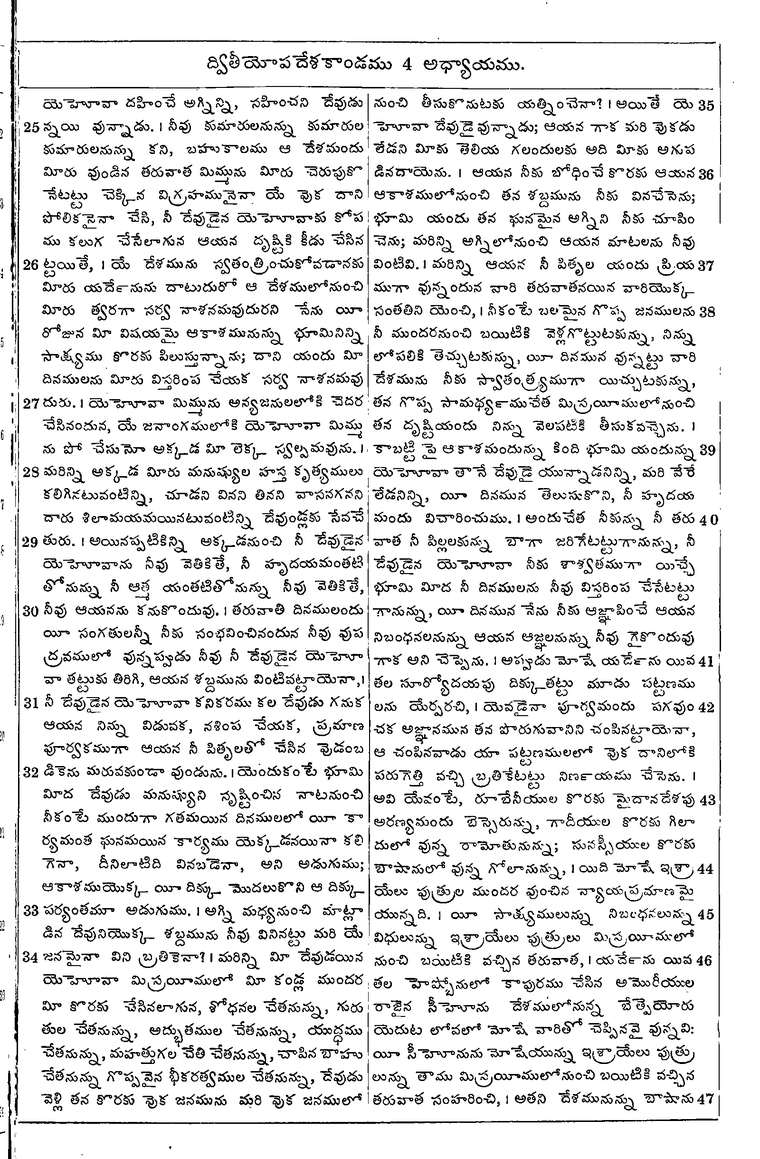 ద్వితీయోపదేశకాండము 4 అధ్యాయము.
యెహోవా దహించే అగ్నిన్ని, సహించని దేవుడు
25 న్నయి వున్నాడు. । నీవు కుమారులనున్ను కుమారుల
కుమారులనున్ను కని, బహుకాలము ఆ దేశమందు
మీరు వుండిన తరువాత మిమ్మును మీరు చెరుపుకొ
నేటట్టు చెక్కిన విగ్రహమునైనా యే వొక దాని
పోలికనైనా చేసి, నీ దేవుడైన యెహోవాకు కోప
ము కలుగ చేసేలాగున ఆయన దృష్టికి కీడు చేసిన
26 ట్టయితే, । యే దేశమును స్వతంత్రించుకోవడానకు
మీరు యర్దేనును దాటుదురో ఆ దేశములోనుంచి
మీరు త్వరగా సర్వ నాశనమవుదురని నేను యీ
రోజున మీ విషయమై ఆకాశమునున్ను భూమినిన్ని
సాక్ష్యము కొరకు పిలుస్తున్నాను; దాని యందు మీ
దినములను మీరు విస్తరింప చేయక సర్వ నాశనమవు
27 దురు. । యెహోవా మిమ్మును అన్యజనులలోకి చెదర
చేసినందున, యే జనాంగములోకి యెహోవా మిమ్ము
ను పో చేసునో అక్కడ మీ లెక్క స్వల్పమవును. ।
28 మరిన్ని అక్కడ మీరు మనుష్యుల హస్త కృత్యములు
కలిగినటువంటిన్ని, చూడని వినని తినని వాసనగనని
దారు శిలామయమయినటువంటిన్ని దేవుండ్లకు సేవచే
29 తురు. । అయినప్పటికిన్ని అక్కడనుంచి నీ దేవుడైన
యెహోవాను నీవు వెతికితే, నీ హృదయమంతటి
తోనున్ను నీ ఆత్మ యంతటితోనున్ను నీవు వెతికితే,
30 నీవు ఆయనను కనుకొందువు. । తరువాతి దినములందు
యీ సంగతులన్నీ నీకు సంభవించినందున నీవు వుప
ద్రవములో వున్నప్పుడు నీవు నీ దేవుడైన యెహో
వా తట్టుకు తిరిగి, ఆయన శబ్దమును వింటివట్టాయెనా, ।
31 నీ దేవుడైన యెహోవా కనికరము కల దేవుడు గనుక
ఆయన నిన్ను విడువక, నశింప చేయక, ప్రమాణ
పూర్వకముగా ఆయన నీ పితృలతో చేసిన వొడంబ
32 డికెను మరువకుండా వుండును. । యెందుకంటే భూమి
మీద దేవుడు మనుష్యుని సృష్టించిన నాటనుంచి
నీకంటే ముందుగా గతమయిన దినములలో యీ కా
ర్యమంత ఘనమయిన కార్యము యెక్కడనయినా కలి
గెనా, దీనిలాటిది వినబడెనా, అని అడుగుము;
ఆకాశముయొక్క యీ దిక్కు మొదలుకొని ఆ దిక్కు
33 పర్యంతమూ అడుగుము. । అగ్ని మధ్యనుంచి మాట్లా
డిన దేవునియొక్క శబ్దమును నీవు వినినట్టు మరి యే
34 జనమైనా విని బ్రతికెనా? । మరిన్ని మీ దేవుడయిన
యెహోవా మిస్రయీములో మీ కండ్ల ముందర
మీ కొరకు చేసినలాగున, శోధనల చేతనున్ను, గురు
తుల చేతనున్ను, అద్భుతముల చేతనున్ను, యుద్ధము
చేతనున్ను, మహత్తుగల చేతి చేతనున్ను, చాపిన బాహు
చేతనున్ను గొప్పవైన భీకరత్వముల చేతనున్ను, దేవుడు
వెళ్లి తన కొరకు వొక జనమును మరి వొక జనములో
నుంచి తీసుకొనుటకు యత్నించెనా? । అయితే యె 35
హోవా దేవుడై వున్నాడు; ఆయన గాక మరి వొకడు
లేడని మీకు తెలియ గలందులకు అది మీకు అగుప
డినదాయెను. । ఆయన నీకు బోధించే కొరకు ఆయన 36
ఆకాశములోనుంచి తన శబ్దమును నీకు వినచేసెను;
భూమి యందు తన ఘనమైన అగ్నిని నీకు చూపిం
చెను; మరిన్ని అగ్నిలోనుంచి ఆయన మాటలను నీవు
వింటివి. । మరిన్ని ఆయన నీ పితృల యందు ప్రియ 37
ముగా వున్నందున వారి తరువాతనయిన వారియొక్క
సంతతిని యెంచి, । నీకంటే బలమైన గొప్ప జనములను 38
నీ ముందరనుంచి బయిటికి వెళ్లగొట్టుటకున్ను, నిన్ను
లోపలికి తెచ్చుటకున్ను, యీ దినమున వున్నట్టు వారి
దేశమును నీకు స్వాతంత్ర్యముగా యిచ్చుటకున్ను,
తన గొప్ప సామర్థ్యముచేత మిస్రయీములోనుంచి
తన దృష్టియందు నిన్ను వెలపటికి తీసుకవచ్చెను. ।
కాబట్టి పై ఆకాశమందున్ను కింది భూమి యందున్ను 39
యెహోవా తానే దేవుడై యున్నాడనిన్ని, మరి వేరే
లేడనిన్ని, యీ దినమున తెలుసుకొని, నీ హృదయ
మందు విచారించుము. । అందుచేత నీకున్ను నీ తరు 40
వాత నీ పిల్లలకున్ను బాగా జరిగేటట్టుగానున్ను, నీ
దేవుడైన యెహోవా నీకు శాశ్వతముగా యిచ్చే
భూమి మీద నీ దినములను నీవు విస్తరింప చేసేటట్టు
గానున్ను, యీ దినమున నేను నీకు ఆజ్ఞాపించే ఆయన
నిబంధనలనున్ను ఆయన ఆజ్ఞలనున్ను నీవు గైకొందువు
గాక అని చెప్పెను. । అప్పుడు మోషే యర్దేను యివ 41
తల సూర్యోదయపు దిక్కుతట్టు మూడు పట్టణము
లను యేర్పరచి, । యెవడైనా పూర్వమందు పగవుం 42
చక అజ్ఞానమున తన పొరుగువానిని చంపినట్టాయెనా,
ఆ చంపినవాడు యా పట్టణములలో వొక దానిలోకి
పరుగెత్తి వచ్చి బ్రతికేటట్టు నిర్ణయము చేసెను. ।
అవి యేవంటే, రూబేనీయుల కొరకు మైదానదేశపు 43
అరణ్యమందు బెస్సెరున్ను, గాదీయుల కొరకు గిలా
దులో వున్న రామోతునున్ను; మనస్సీయుల కొరకు
బాషానులో వున్న గోలానున్ను, । యిది మోషే ఇశ్రా 44
యేలు పుత్రుల ముందర వుంచిన న్యాయప్రమాణమై
యున్నది. । యీ సాక్ష్యములున్ను నిబంధనలున్ను 45
విధులున్ను ఇశ్రాయేలు పుత్రులు మిస్రయీములో
నుంచి బయిటికి వచ్చిన తరువాత, । యర్దేను యివ 46
తల హెష్బోనులో కాపురము చేసిన అమోరీయుల
రాజైన సీహోను దేశములోనున్న బేత్పెయోరు
యెదుట లోవలో మోషే వారితో చెప్పినవై వున్నవి:
యీ సీహోనును మోషేయున్ను ఇశ్రాయేలు పుత్రు
లున్ను తాము మిస్రయీములోనుంచి బయిటికి వచ్చిన
తరువాత సంహరించి, । అతని దేశమునున్ను బాషాను 47